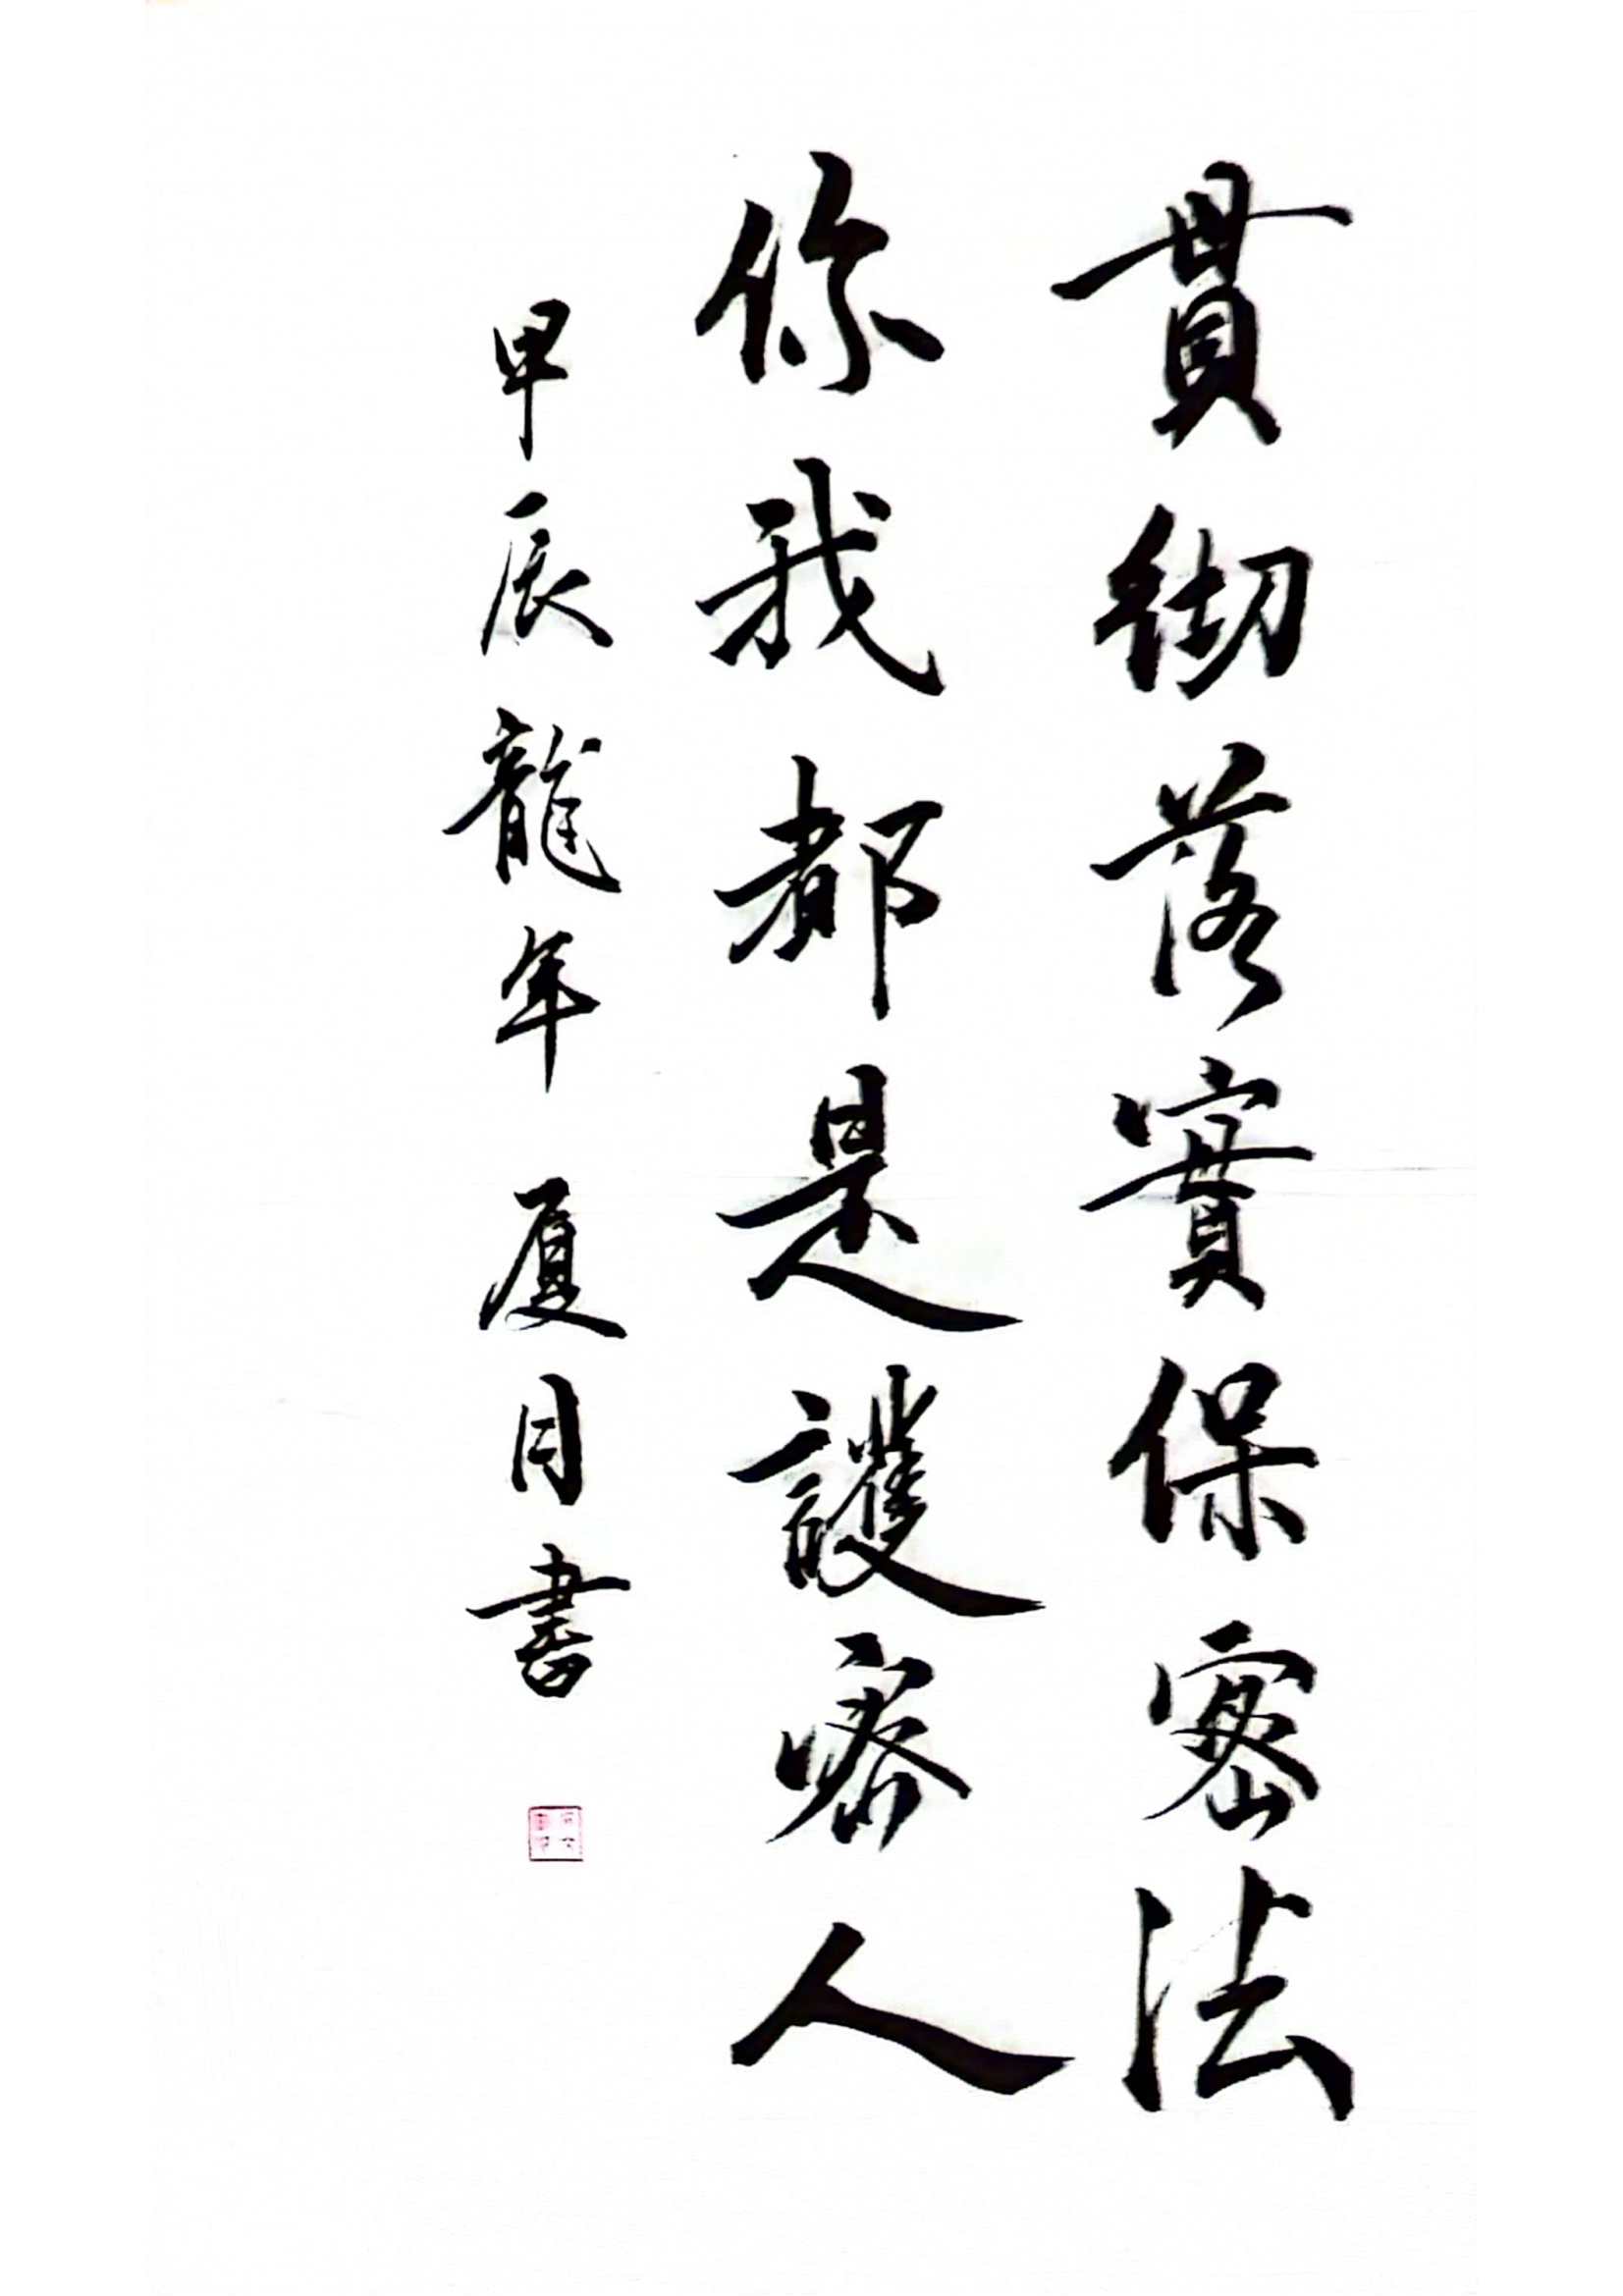 貫彻落實保密法
你我都是護密人
甲辰龍年 厦月書